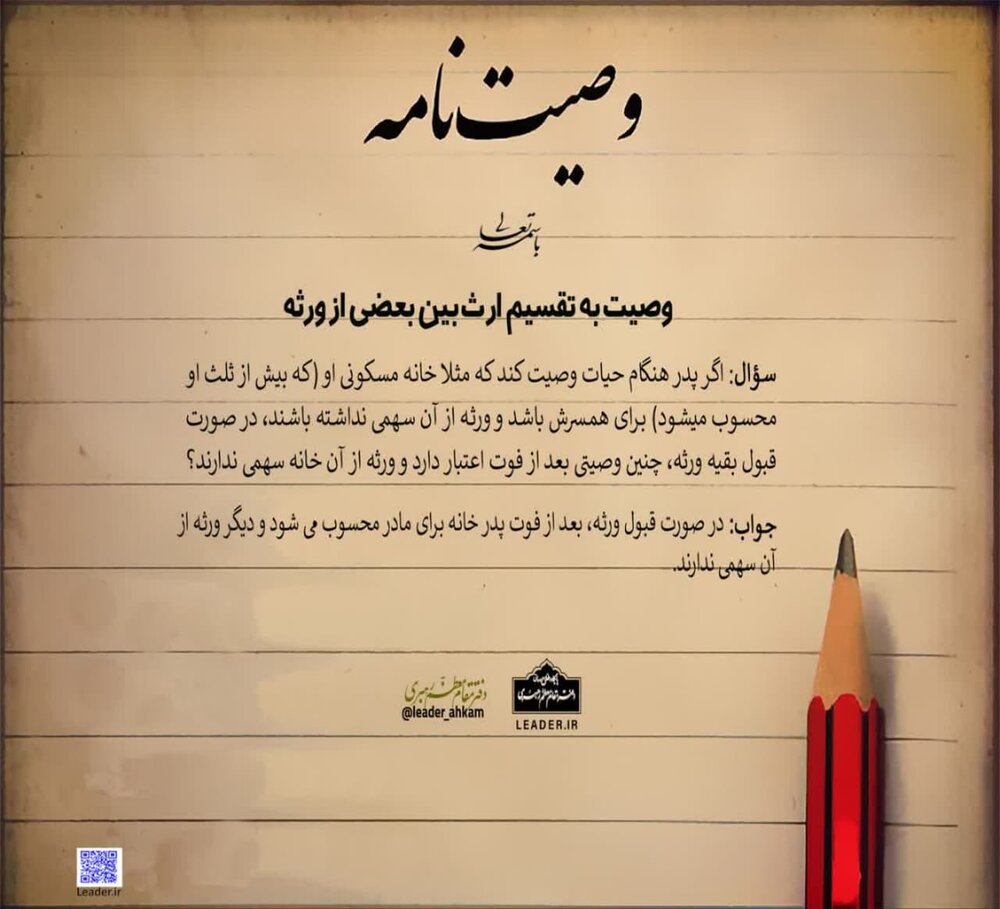 وصیت‌نامه
باسمه تعالی
وصیت به تقسیم ارث بین بعضی از ورثه
سؤال: اگر پدر هنگام حیات وصیت کند که مثلا خانه مسکونی او (که بیش از ثلث او
محسوب میشود) برای همسرش باشد و ورثه از آن سهمی نداشته باشند، در صورت
قبول بقیه ورثه، چنین وصیتی بعد از فوت اعتبار دارد و ورثه از آن خانه سهمی ندارند؟
جواب: در صورت قبول ورثه، بعد از فوت پدر خانه برای مادر محسوب می شود و دیگر ورثه از
آن سهمی ندارند.
دفتر مقام معظم رهبری
@leader_ahkam
دفتر مقام معظم رهبری
LEADER.IR
Leader.ir